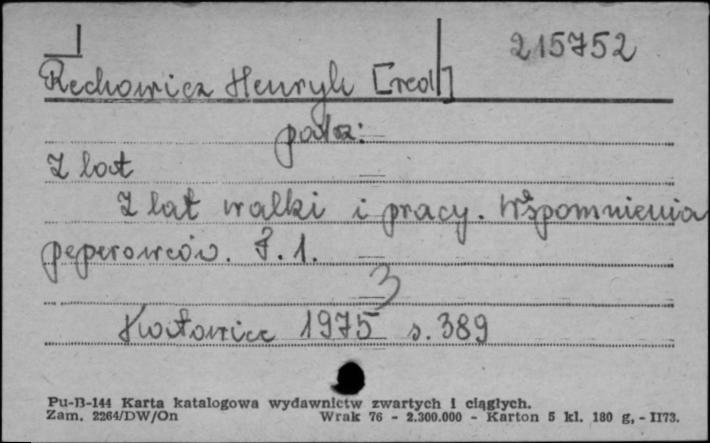 215752
Rechowicz Henryk [red]
patrz:
Z lat
Z lat walki i pracy. Wspomnienia
peperowców. T. 1.
3
Katowice 1975 s. 389
Pu-B-144 Karta katalogowa wydawnictw zwartych i ciągłych.
Zam. 2264/DW/On Wrak 76 - 2.300.000 - Karton 5 kl. 180 g, - II73.